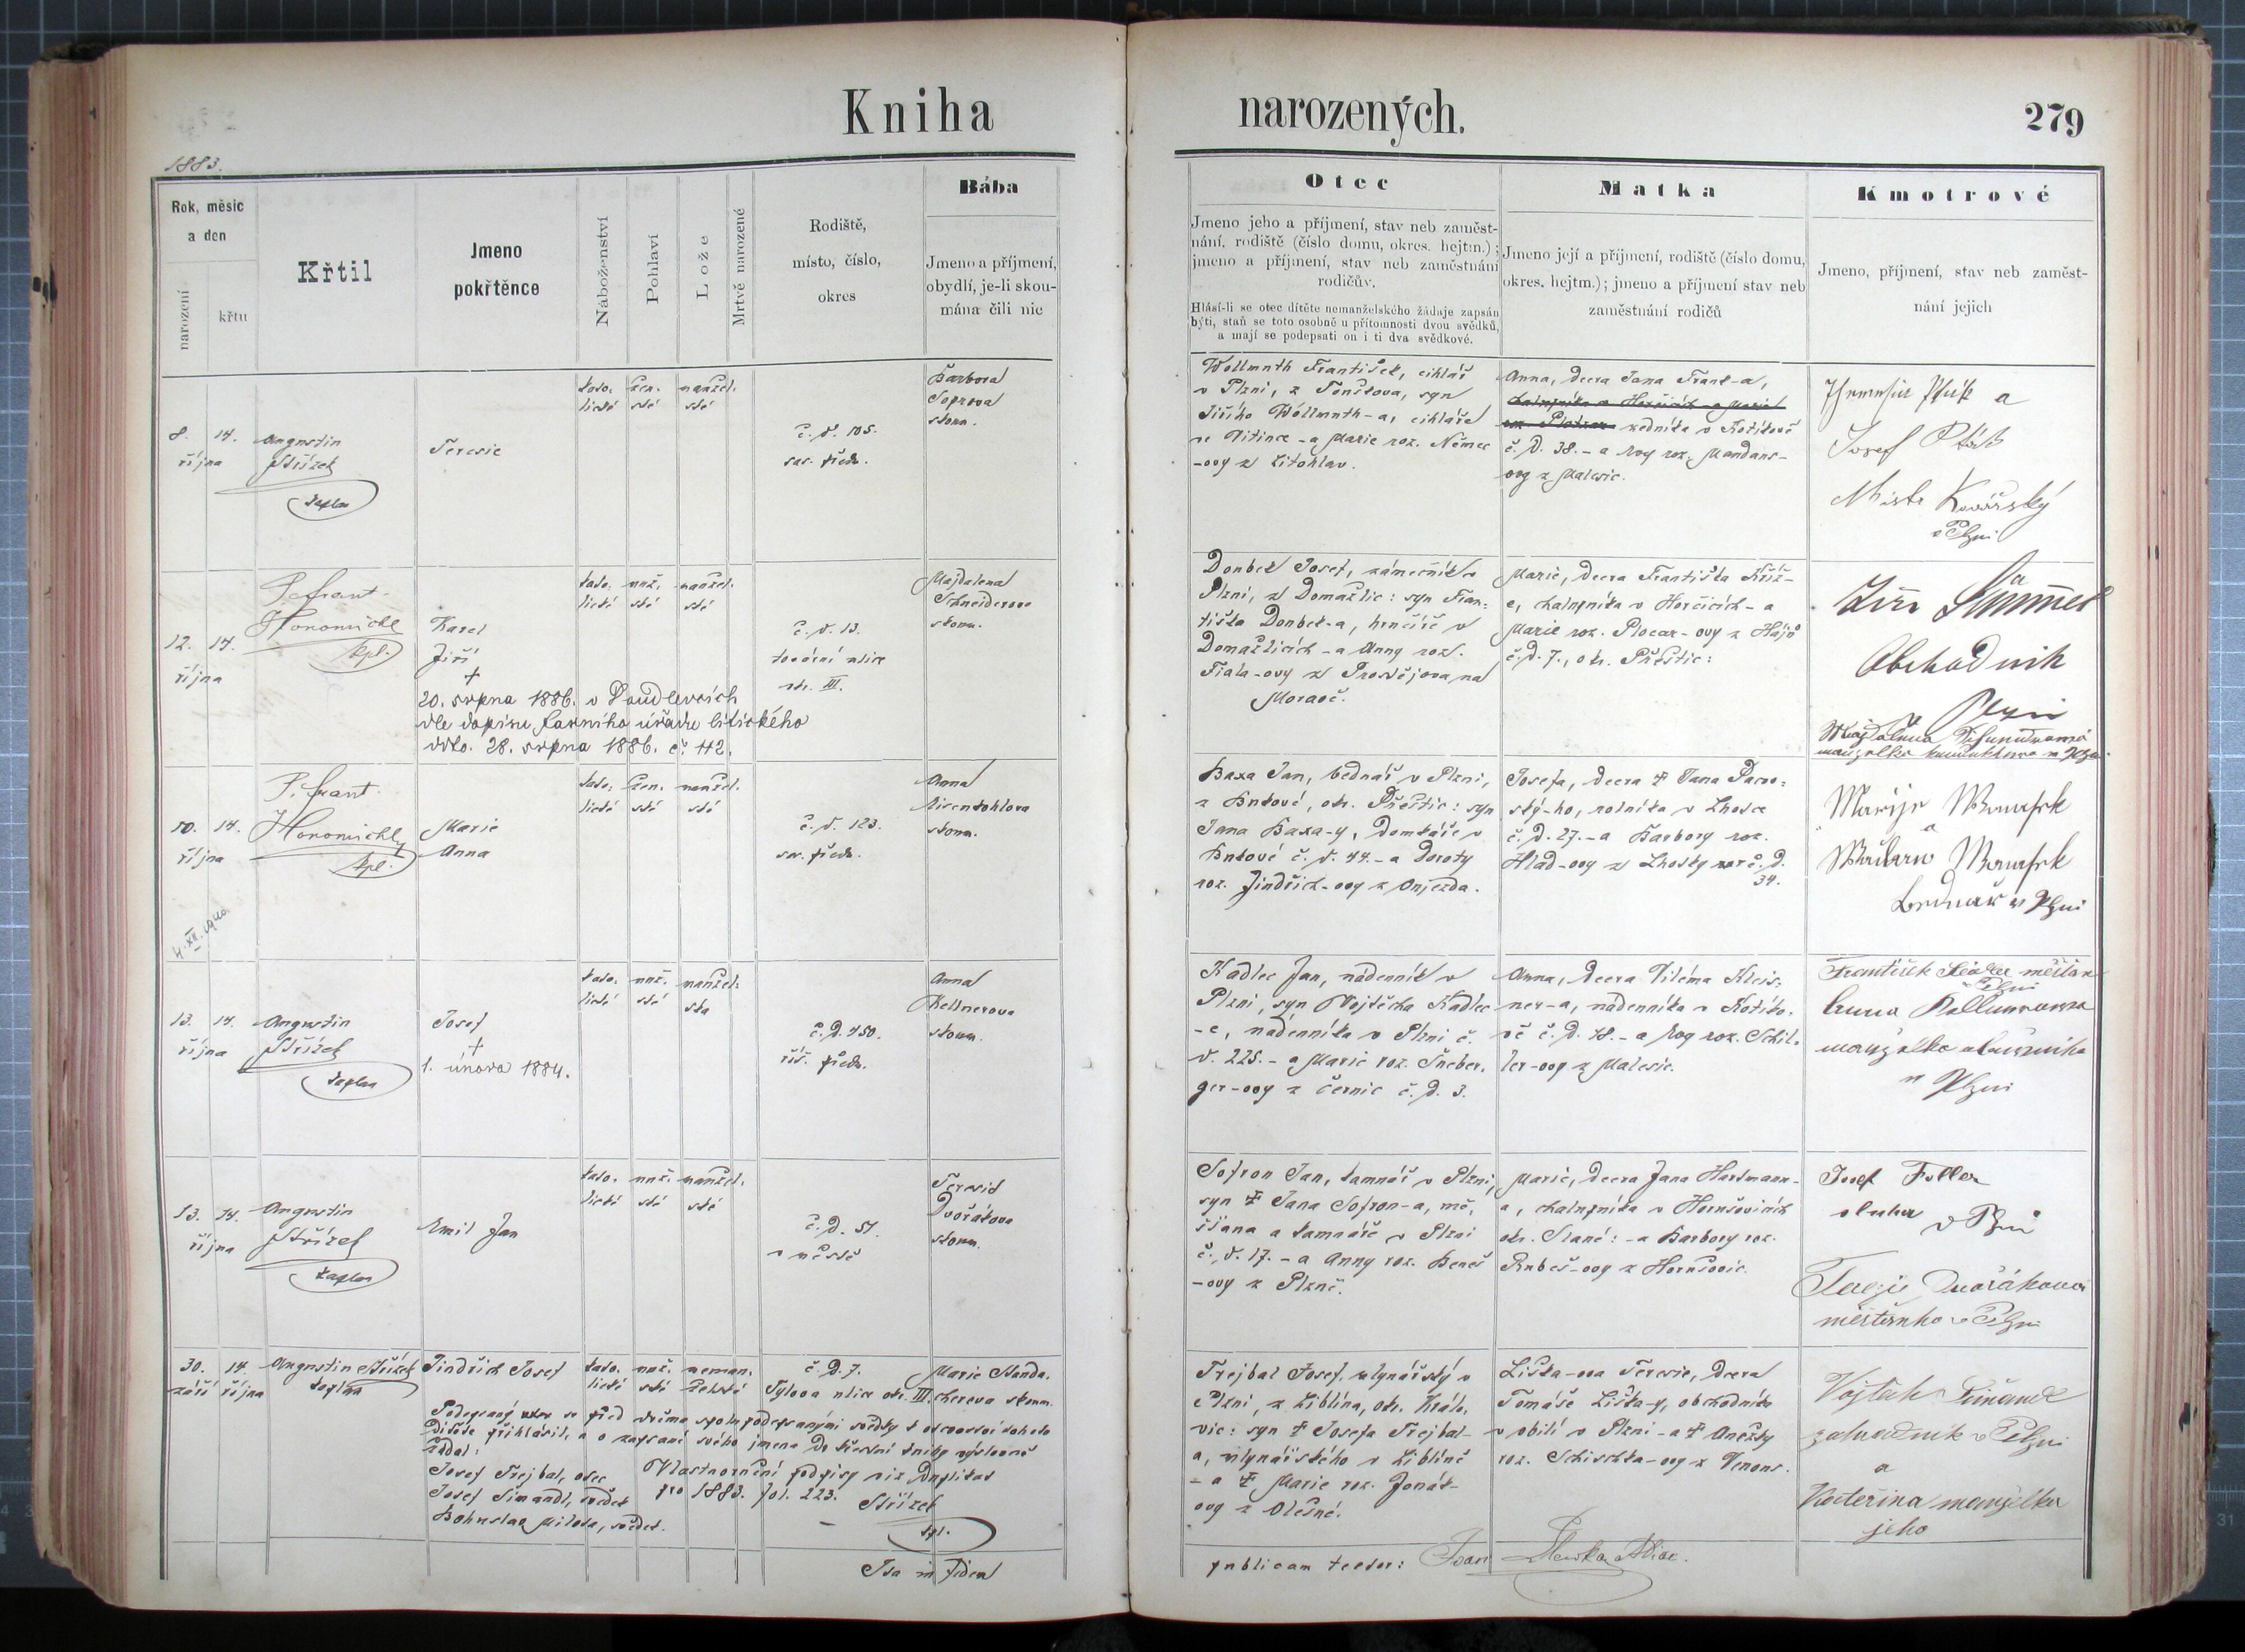 Kniha
narozených.
279
1883.
Rok, měsíc
a den
narození
křtu
Křtil
Jmeno
pokřtěnce
Náboženství
Pohlaví
Lože
Mrtvě narozené
Rodiště,
místo, číslo,
okres
Bába
Jmeno a příjmení,
obydlí, je-li skou-
mána čili nic
Otec
Jmeno jeho a příjmení, stav neb zaměst-
nání, rodiště (číslo domu, okres. hejtm.);
jmeno a příjmení, stav neb zaměstnání
rodičův.
Hlásí-li se otec dítěte nemanželského žádaje zapsán
býti, staň se toto osobně u přítomnosti dvou svědků,
a mají se podepsati on i ti dva svědkové.
Matka
Jmeno její a příjmení, rodiště (číslo domu,
okres. hejtm.); jmeno a příjmení stav neb
zaměstnání rodičů
Kmotrové
Jmeno, příjmení, stav neb zaměst-
nání jejich
8. 14.
října
Augustin
Střízek
kaplan
Teresie
kato. žen. manžel.
lické ské ské
č. d. 105.
sas. předm.
Barbora
Toprova
zkoum.
Wollmuth František, cihlář
v Plzni, z Tončkova, syn
Jiřího Wollmuth-a, cihláře
ve Vitince - a Marie roz. Němec
-ovy z Litohlav.
Anna, dcera Jana Frank-a,
zedníka v Kotíkově
č. d. 38. - a Rosy roz. Mandaus-
ovy z Malesic.
Josef Pták
Mistr Kovářský
v Plzni
12. 14.
října
P. Frant.
Honomichl
kpl.
Karel
Jiří
+
20. srpna 1886. v Doudlevcích
dle dopisu farního úřadu litického
ddto. 28. srpna 1886. č. 112.
kato. muž. manžel.
lické ské ské
č. d. 13.
tovární ulice
okr. III.
Majdalena
Schneiderova
zkoum.
Doubek Josef, zámečník v
Plzni, z Domažlic: syn Fran-
tiška Doubek-a, hrnčíře v
Domažlicích - a Anny roz.
Fiala-ovy z Prostějova na
Moravě.
Marie, dcera Františka Kříž-
e, chalupníka v Horčicích - a
Marie roz. Plocar-ovy z Hájů
č. d. 7., okr. Přestic:
Jiří
Obchodník
Plzni
10. 14.
října
P. Frant.
Honomichl
kpl.
Marie
Anna
4. XII. 1940
kato. žen. manžel.
lické ské ské
č. d. 123.
sas. předm.
Anna
Eisenkohlova
zkoum.
Baxa Jan, bednář v Plzni,
z Bukové, okr. Přestic: syn
Jana Baxa-y, domkáře v
Bukové č. d. 44. - a Doroty
roz. Jindřich-ovy z Oujezda.
Josefa, dcera † Jana Parov-
ský-ho, rolníka v Lhotce
č. d. 27. - a Barbory roz.
Hlad-ovy z Lhotky č. d.
34.
bednář v Plzni
13. 14.
října
Augustin
Střízek
kaplan
Josef
+
1. února 1884.
kato. muž. manžel.
lické ské ské
č. d. 450.
říš. předm.
Anna
Kellnerova
zkoum.
Kadlec Jan, nádenník v
Plzni, syn Vojtěcha Kadlec
-e, nádenníka v Plzni č.
d. 225. - a Marie roz. Šneber-
ger-ovy z Černic č. d. 3.
Anna, dcera Viléma Kleis-
ner-a, nádenníka v Kotíko-
vě č. d. 48. - a Rosy roz. Schil-
ler-ovy z Malesic.
František měšťan
v Plzni
Anna Kellnerowa
v Plzni
13. 14.
října
Augustin
Střízek
kaplan
Emil Jan
kato. muž. manžel.
lické ské ské
č. d. 51.
v městě
Teresie
Dvořákova
zkoum.
Sofron Jan, kamnář v Plzni,
syn † Jana Sofron-a, mě-
šťana a kamnáře v Plzni
č. d. 17. - a Anny roz. Beneš
-ovy z Plzně.
Marie, dcera Jana Hartmann-
a, chalupníka v Hornšovicích
okr. Slané: - a Barbory roz.
Rubeš-ovy z Hornšovic.
Josef
sluha
v Plzni
Terezie Dvořáková
měšťanka v Plzni
30. 14.
září října
Augustin Střízek
kaplan
Jindřich Josef
kato. muž. neman.
lické ské želské
č. d. 7.
Tylova ulice okr. III.
Marie Standa-
cherova zkoum.
Podepsaný se před dvěma spolupodepsanými svědky k otcovství tohoto
dítěte přihlásil, a o zapsaní svého jmena do křestní knihy výslovně
žádal:
Josef Trejbal, otec
Josef Šimandl, svědek
Bohuslav Milota, svědek.
Vlastnoruční podpisy viz Duplikat
pro 1883. fol. 223.
Střízek
kpl.
Trejbal Josef, mlynářský v
Plzni, z Liblína, okr. Kralo-
vic: syn † Josefa Trejbal-
a, mlynářského v Liblíně
- a † Marie roz. Jonáš-
ovy z Olešné.
Liška-ova Teresie, dcera
Tomáše Liška-y, obchodníka
v obilí v Plzni - a † Anežky
roz. Schischka-ovy z Venous.
Vojtěch Šimandl
v Plzni
a
Kateřina manželka
jeho
Ita in fidem
publicam testor: